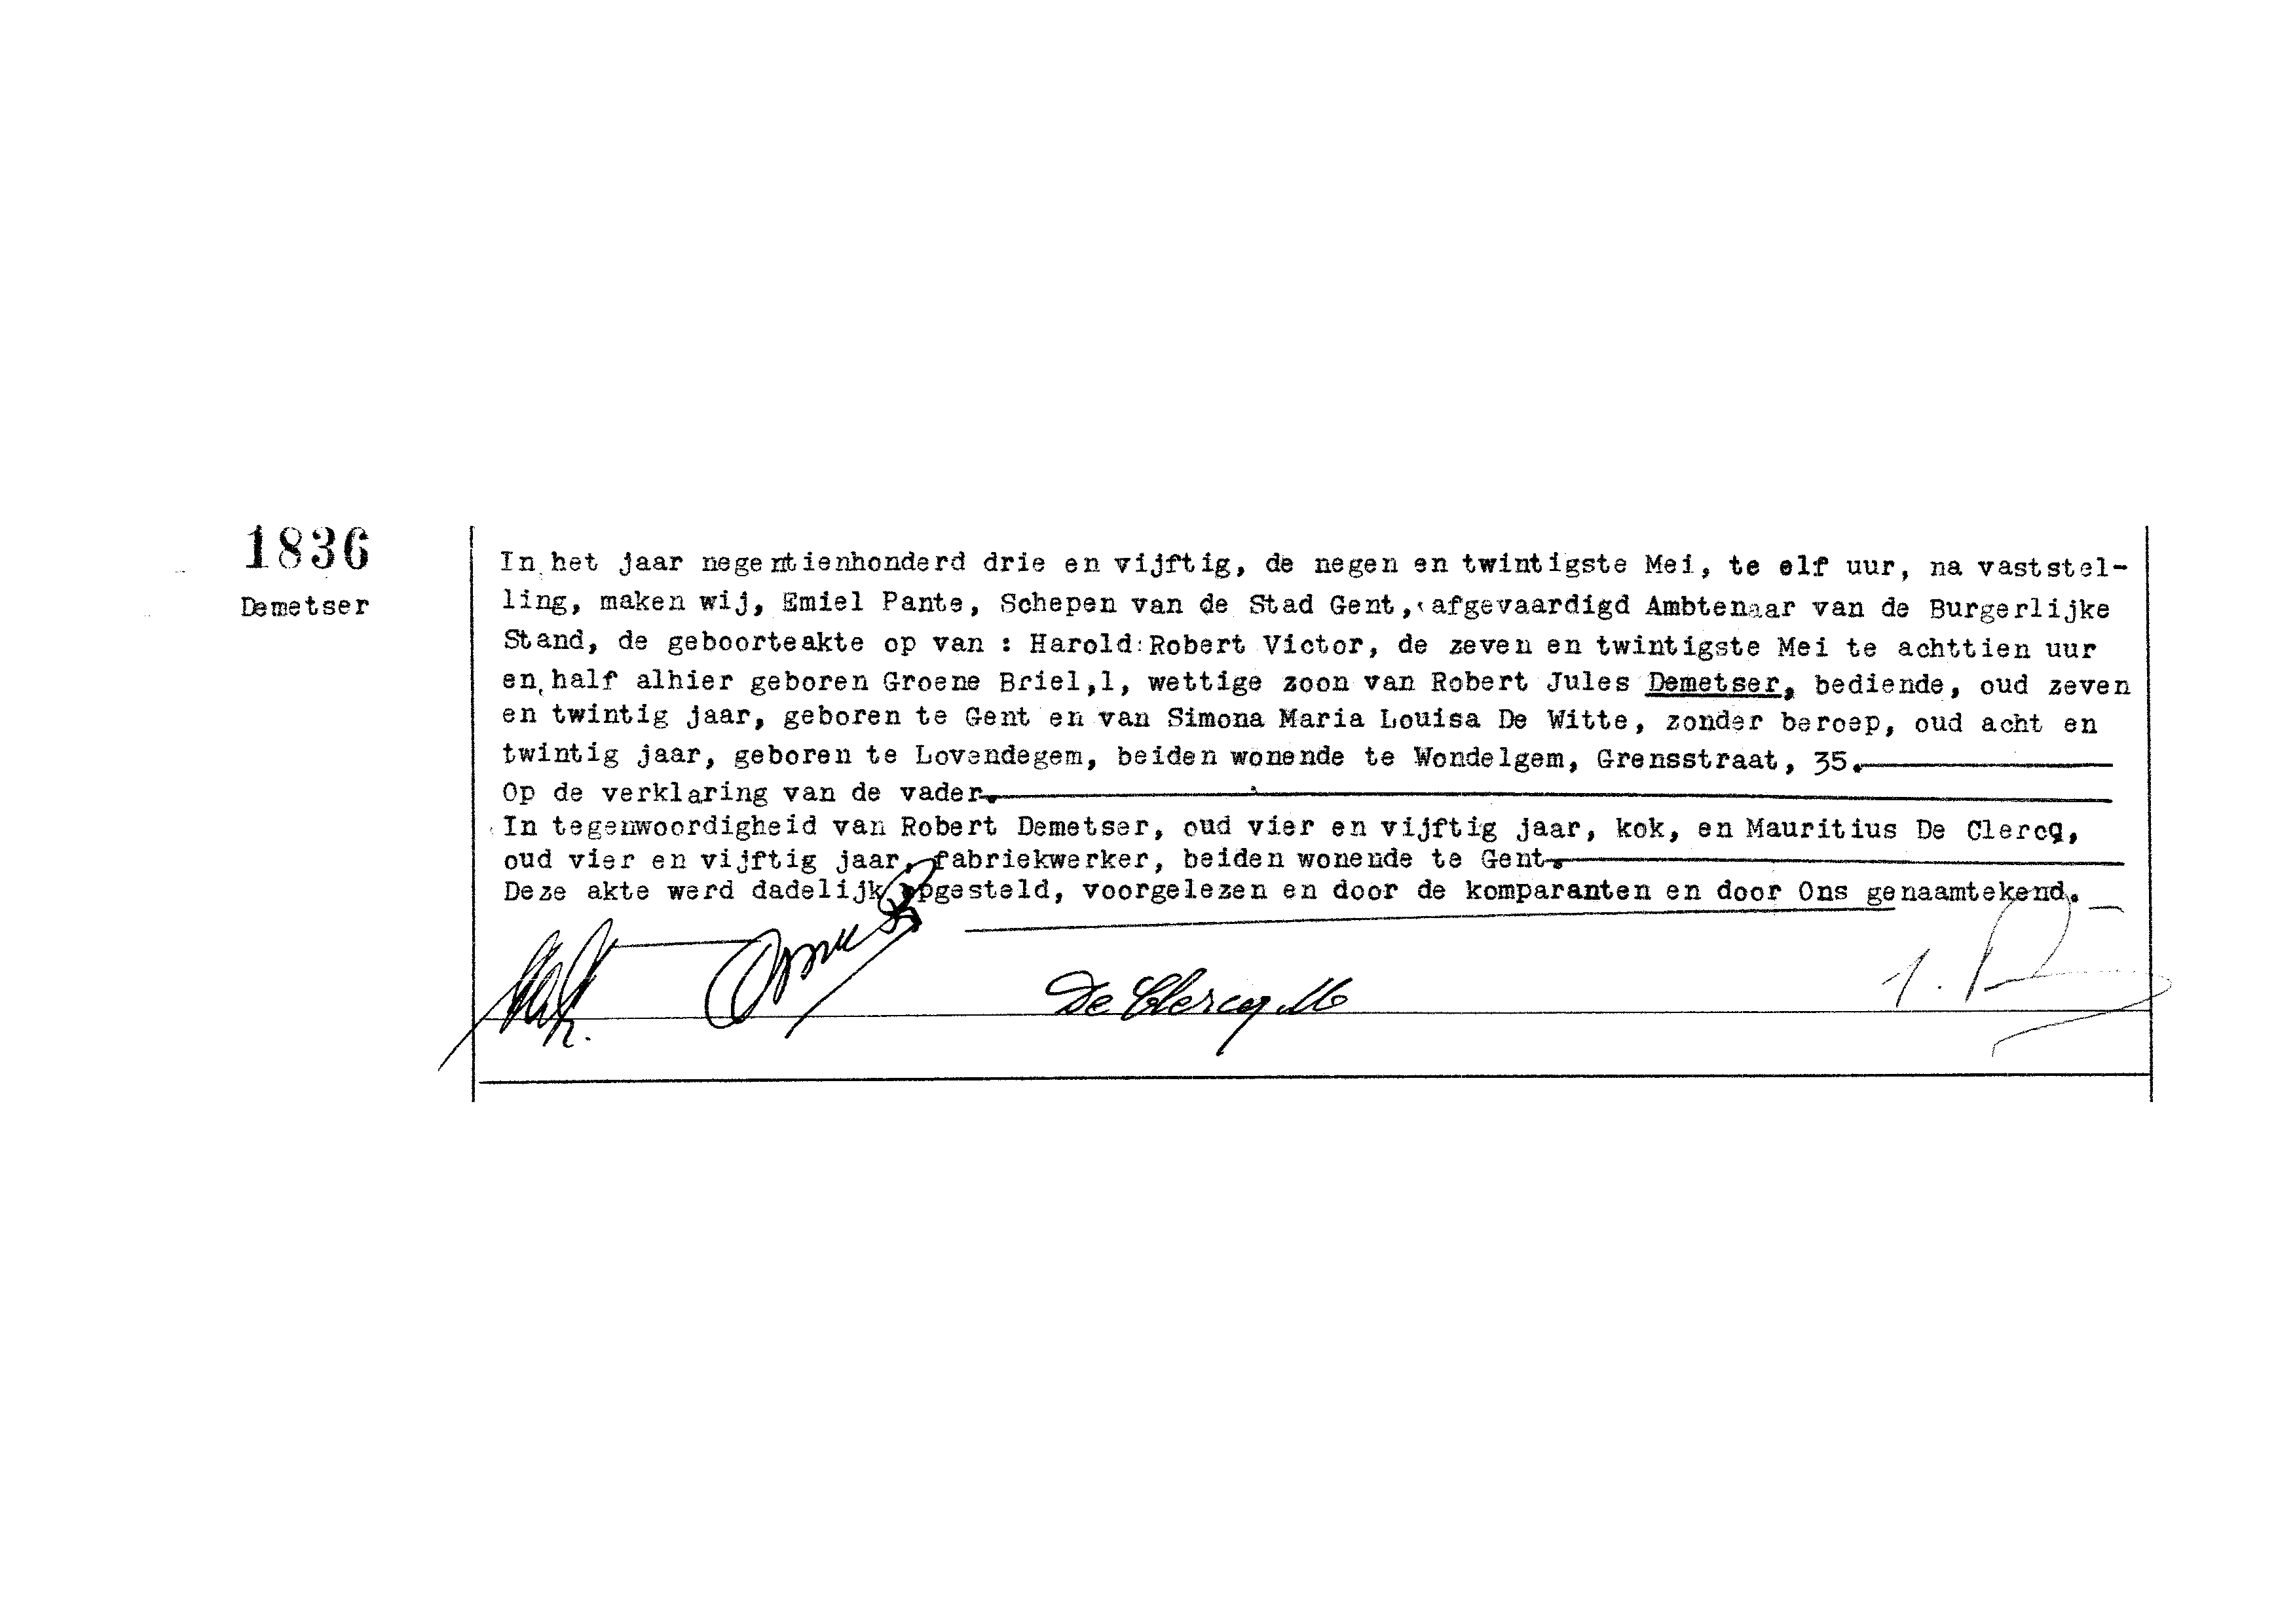 1836
Demetser
In het jaar negentienhonderd drie en vijftig, de negen en twintigste Mei, te elf uur, na vaststel-
ling, maken wij, Emiel Pante, Schepen van de Stad Gent, afgevaardigd Ambtenaar van de Burgerlijke
Stand, de geboorteakte op van : Harold Robert Victor, de zeven en twintigste Mei te achttien uur
en half alhier geboren Groene Briel,1, wettige zoon van Robert Jules Demetser, bediende, oud zeven
en twintig jaar, geboren te Gent en van Simona Maria Louisa De Witte, zonder beroep, oud acht en
twintig jaar, geboren te Lovendegem, beiden wonende te Wondelgem, Grensstraat, 35.
Op de verklaring van de vader.
In tegenwoordigheid van Robert Demetser, oud vier en vijftig jaar, kok, en Mauritius De Clercq,
oud vier en vijftig jaar, fabriekwerker, beiden wonende te Gent.
Deze akte werd dadelijk opgesteld, voorgelezen en door de komparanten en door Ons genaamtekend.
De Clercq M